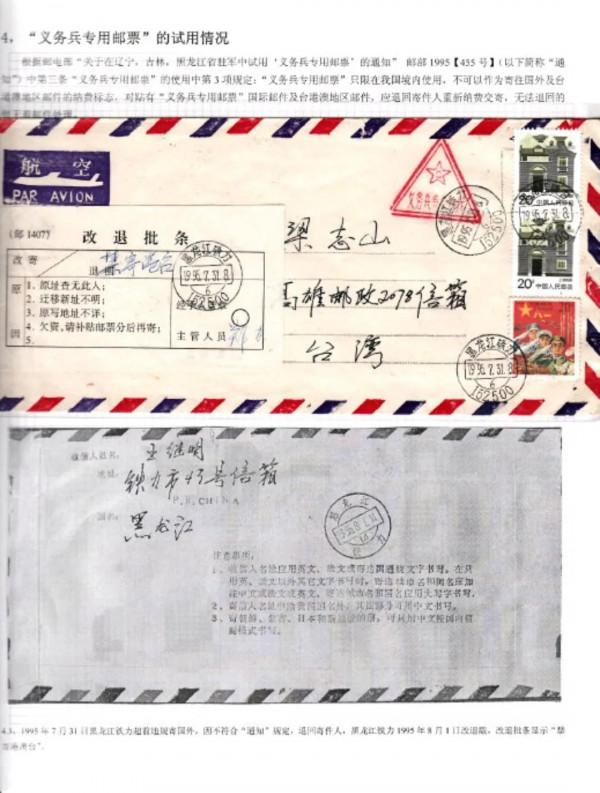 4，“义务兵专用邮票”的试用情况
根据邮电部“关于在辽宁，吉林，黑龙江省驻军中试用‘义务兵专用邮票’的通知” 邮部1995【455号】(以下简称“通
知”) 中第三条“义务兵专用邮票”的使用中第3项规定：“义务兵专用邮票”只限在我国境内使用，不可以作为寄往国外及台
港澳地区邮件的纳费标志，对贴有“义务兵专用邮票”国际邮件及台港澳地区邮件，应退回寄件人重新纳费交寄，无法退回的
航 空
PAR AVION
义务兵专
黑龙江铁力
152500
20分 中国人民邮政
20分 中国人民邮政
八一
(邮1407)
改退批条
改寄
退回
禁寄港台
原因
1．原址查无此人；
2．迁移新址不明；
3．原写地址不详；
4．欠资，请补贴邮票分后得寄；
5．
主管人员
黑龙江铁力
1995.7.31.8
6
152500
梁志山
高雄邮政2078信箱
台湾
黑龙江铁力
1995.7.31.8
6
152500
收信人姓名：
王继明
地址：
铁力市43号信箱
P.R.CHINA
国名：
黑龙江
黑龙江
铁力
注意事项：
1、收信人名址应用英文、法文或寄达国通晓文字书写。在只
用英、法文以外其它文字书写时，寄达城市名和国名应加
注中文或法文或英文，寄达城市名和国名应用大写字书写。
2、寄信人名址中除我国国名外，其余部分可用中文书写。
4.3，1995年7月31日黑龙江铁力超前违规寄国外，因不符合“通知”规定，退回寄件人，黑龙江铁力1995年8月1日改退戳，改退批条显示“禁
寄港澳台”．